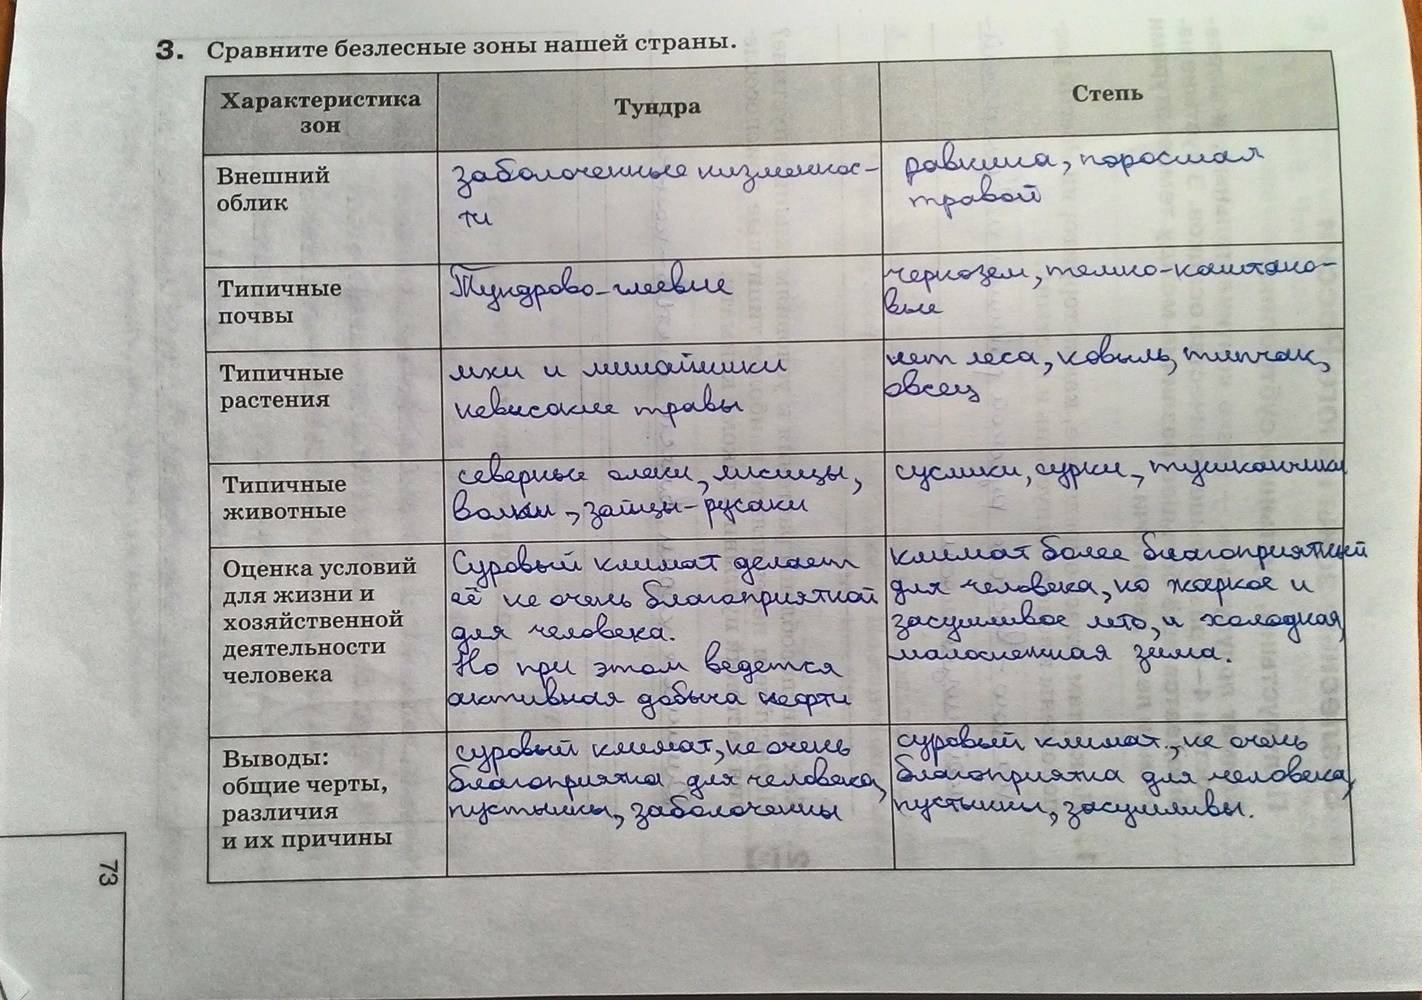 3. Сравните безлесные зоны нашей страны.
Характеристика
зон
Тундра
Степь
Внешний
облик
заболоченные низменнос-
ти
равнина, поросшая
травой
Типичные
почвы
Тундрово-глеевые
чернозем, темно-каштано-
вые
Типичные
растения
мхи и лишайники
невысокие травы
нет леса, ковыль, типчак,
овсец
Типичные
животные
северные олени, лисицы,
волки, зайцы-русаки
суслики, сурки, тушканчики
Оценка условий
для жизни и
хозяйственной
деятельности
человека
Суровый климат делает
её не очень благоприятной
для человека.
Но при этом ведется
активная добыча нефти
климат более благоприятный
для человека, но жаркое и
засушливое лето, и холодная,
малоснежная зима.
Выводы:
общие черты,
различия
и их причины
суровый климат, не очень
благоприятна для человека,
пустынны, заболоченны
суровый климат, не очень
благоприятна для человека,
пустынны, засушливы.
73